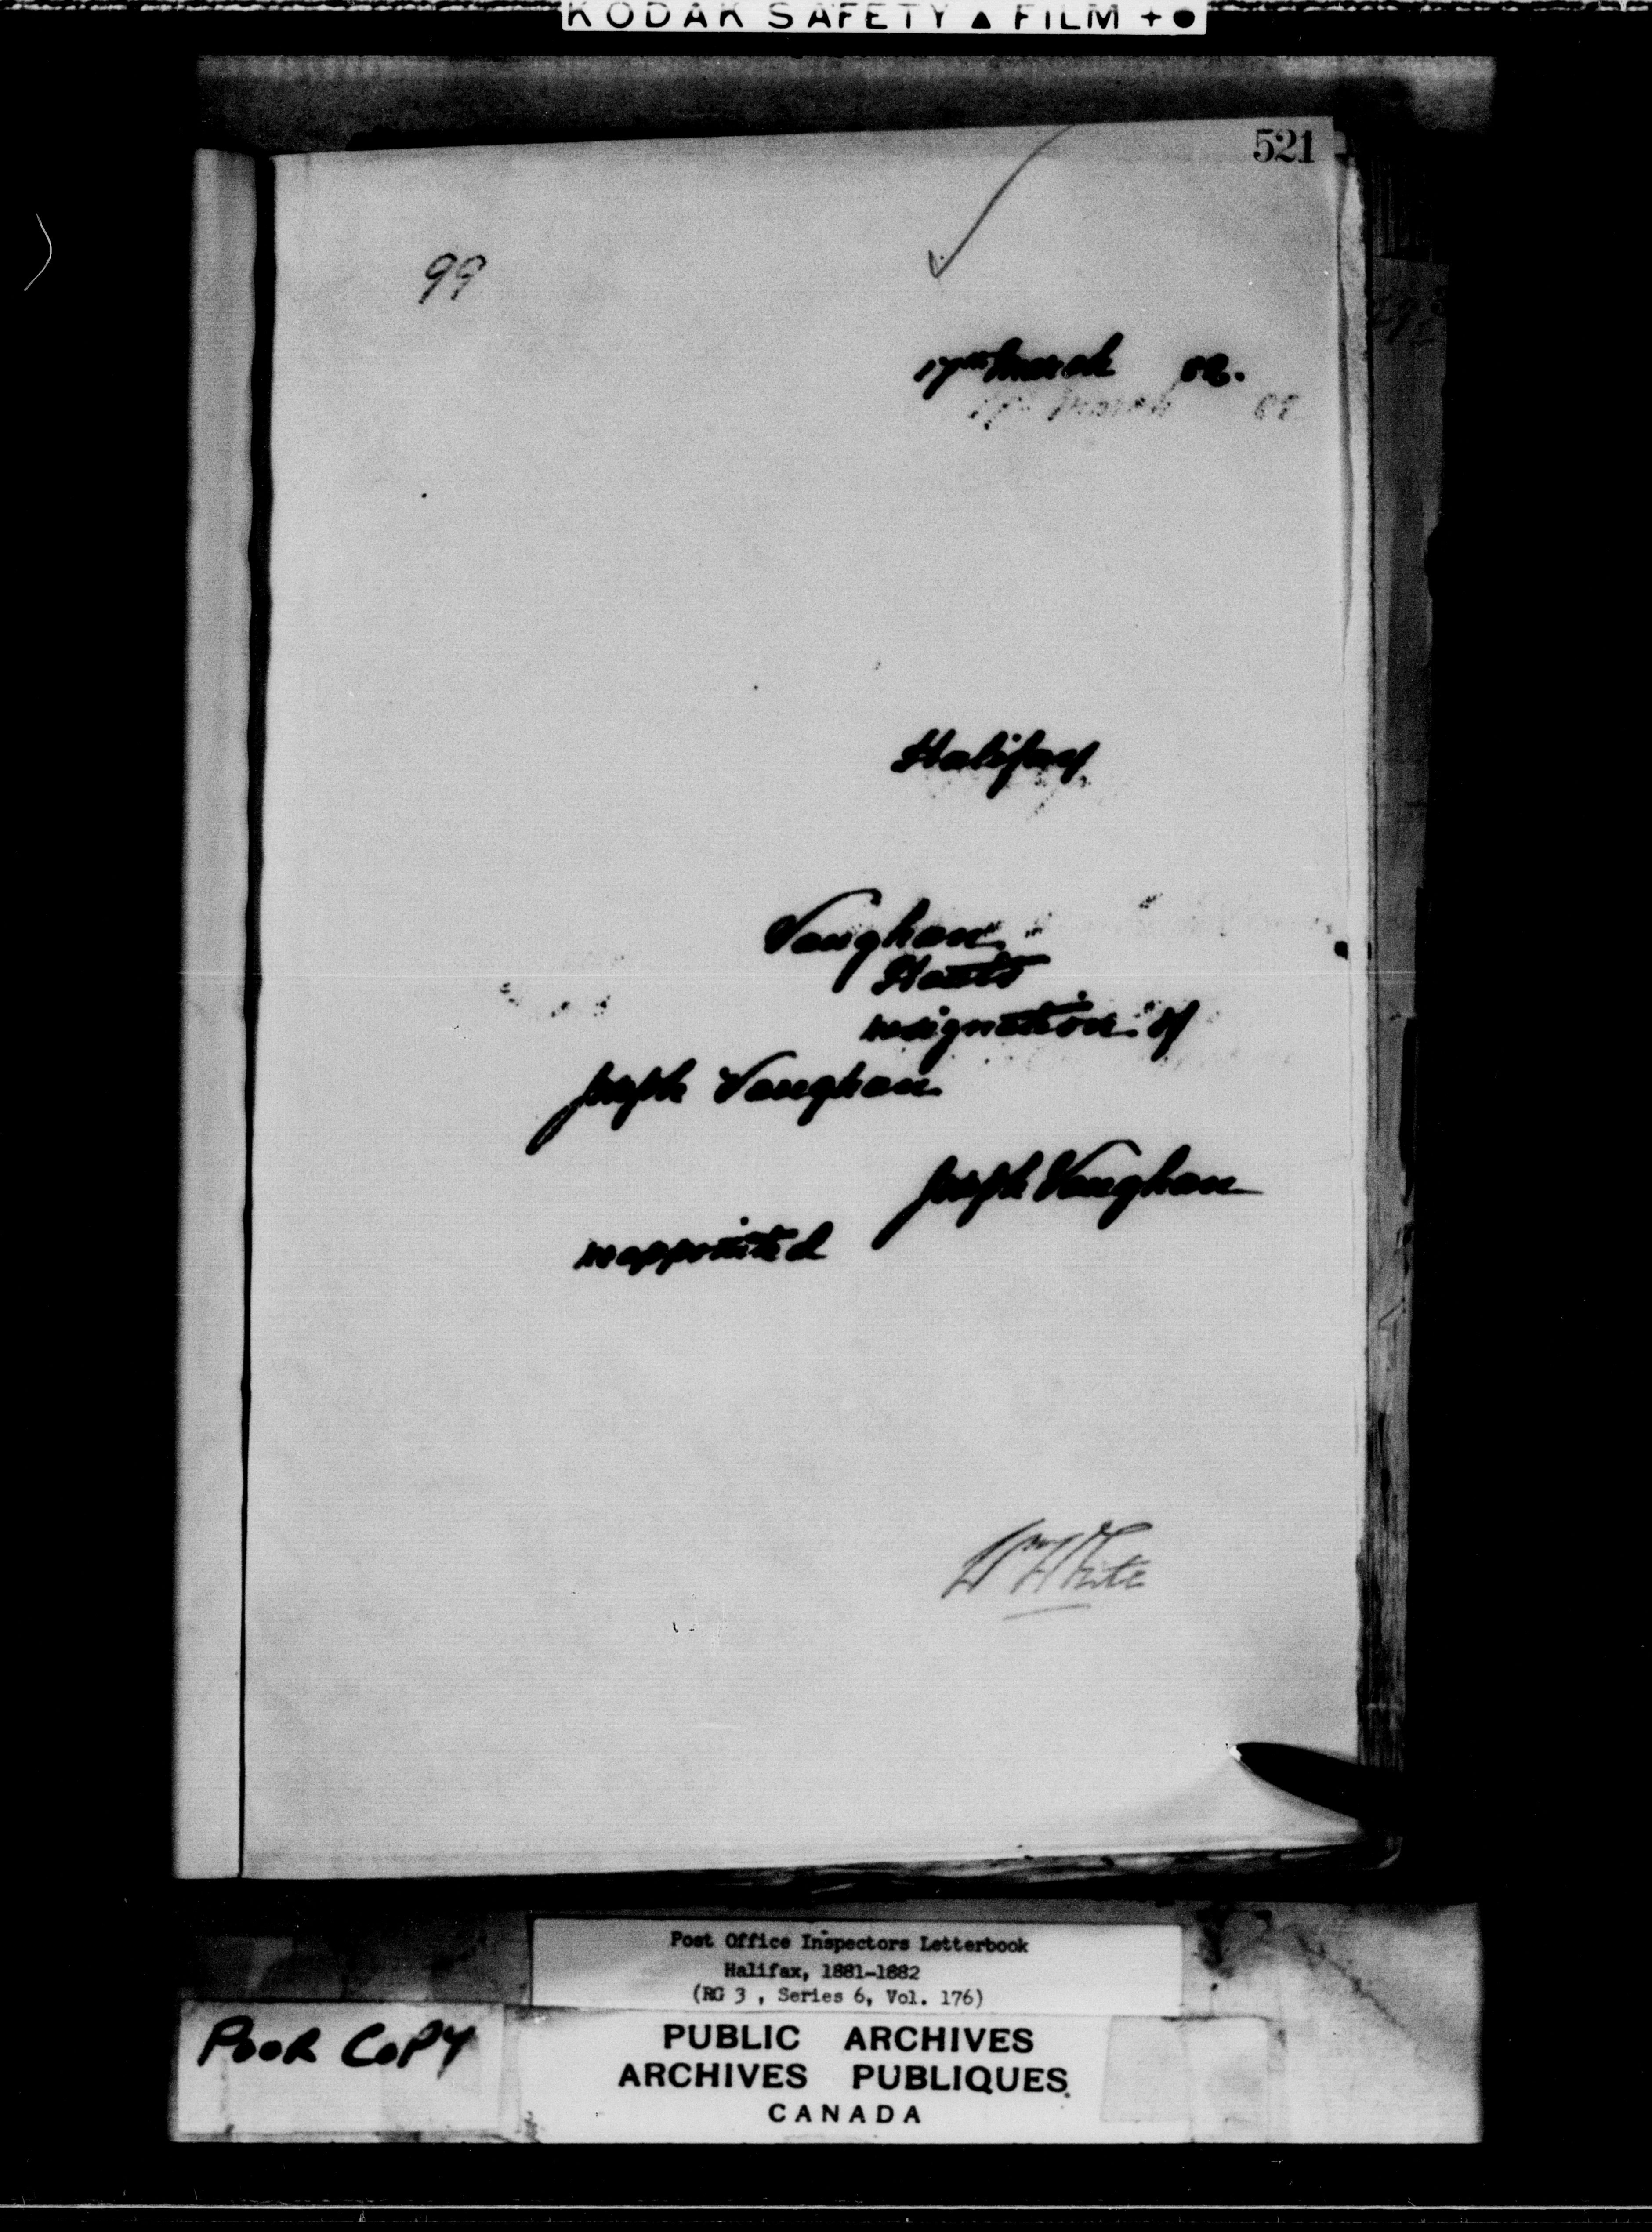 KODAK SAFETY ▲ FILM + ●
521
99
17th March 82.
17th March 82
Halifax
Vaughan
Hants
resignation of
Joseph Vaughan
Joseph Vaughan
reappointed
Wm White
Post Office Inspectors Letterbook
Halifax, 1881-1882
(RG 3 , Series 6, Vol. 176)
POOR COPY
PUBLIC ARCHIVES
ARCHIVES PUBLIQUES
CANADA